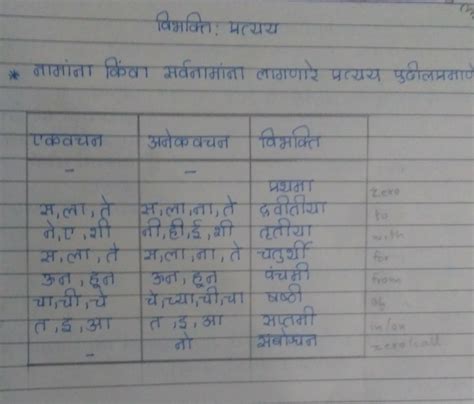 विभक्ति: प्रत्यय
* नामांना किंवा सर्वनामांना लागणारे प्रत्यय पुढीलप्रमाणे
एकवचन अनेकवचन विभक्ति
- - प्रथमा zero
स,ला,ते स,ला,ना,ते द्वीतीया to
ने,ए,शी नी,ही,ई,शी तृतीया with
स,ला,ते स,ला,ना,ते चतुर्थी for
ऊन,हून ऊन,हून पंचमी from
चा,ची,चे चे,च्या,ची,चा षष्ठी of
त,इ,आ त,इ,आ सप्तमी in/on
- नो संबोधन zero/call